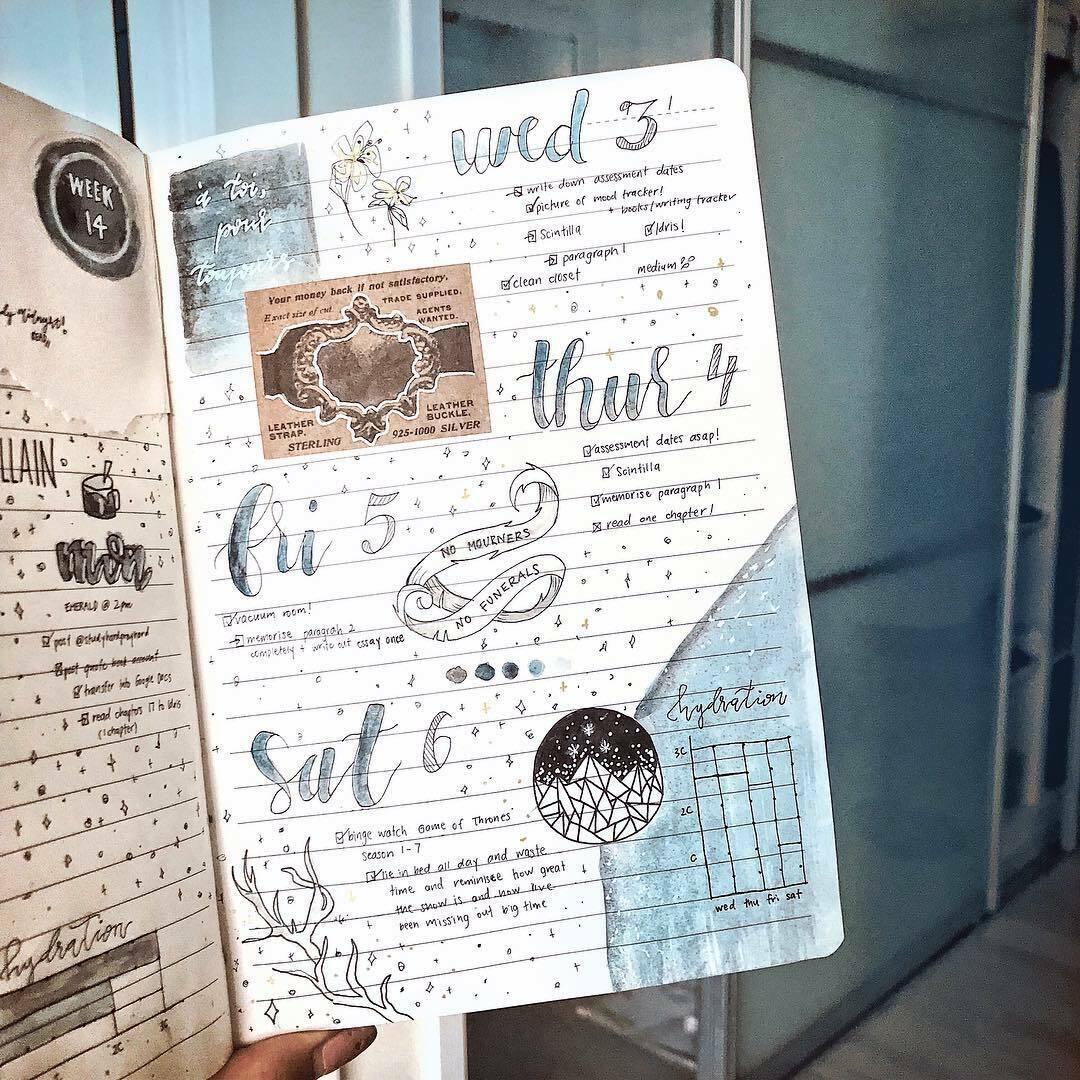 WEEK
14
LLAIN
mon
EMERALD @ 2pm
post @studyhardprayhard
post quote book account
transfer into Google Docs
read chapters 17 to Idris
(1 chapter)
hydration
3C
2C
à toi,
pour
toujours
Your money back if not satisfactory.
Exact size of cut.
TRADE SUPPLIED.
AGENTS
WANTED.
LEATHER
STRAP.
LEATHER
BUCKLE.
STERLING
925-1000 SILVER
wed 3
write down assessment dates
picture of mood tracker!
+ books/writing tracker
Scintilla
Idris!
paragraph 1
clean closet
medium
thur 4
assessment dates asap!
Scintilla
memorise paragraph 1
read one chapter!
fri 5
vacuum room!
memorise paragrah 2
completely + write out essay once
NO MOURNERS
NO FUNERALS
sat 6
binge watch Game of Thrones
season 1-7
lie in bed all day and waste
time and reminisce how great
the show is and how live
been missing out big time
hydration
3C
2C
C
wed thu fri sat